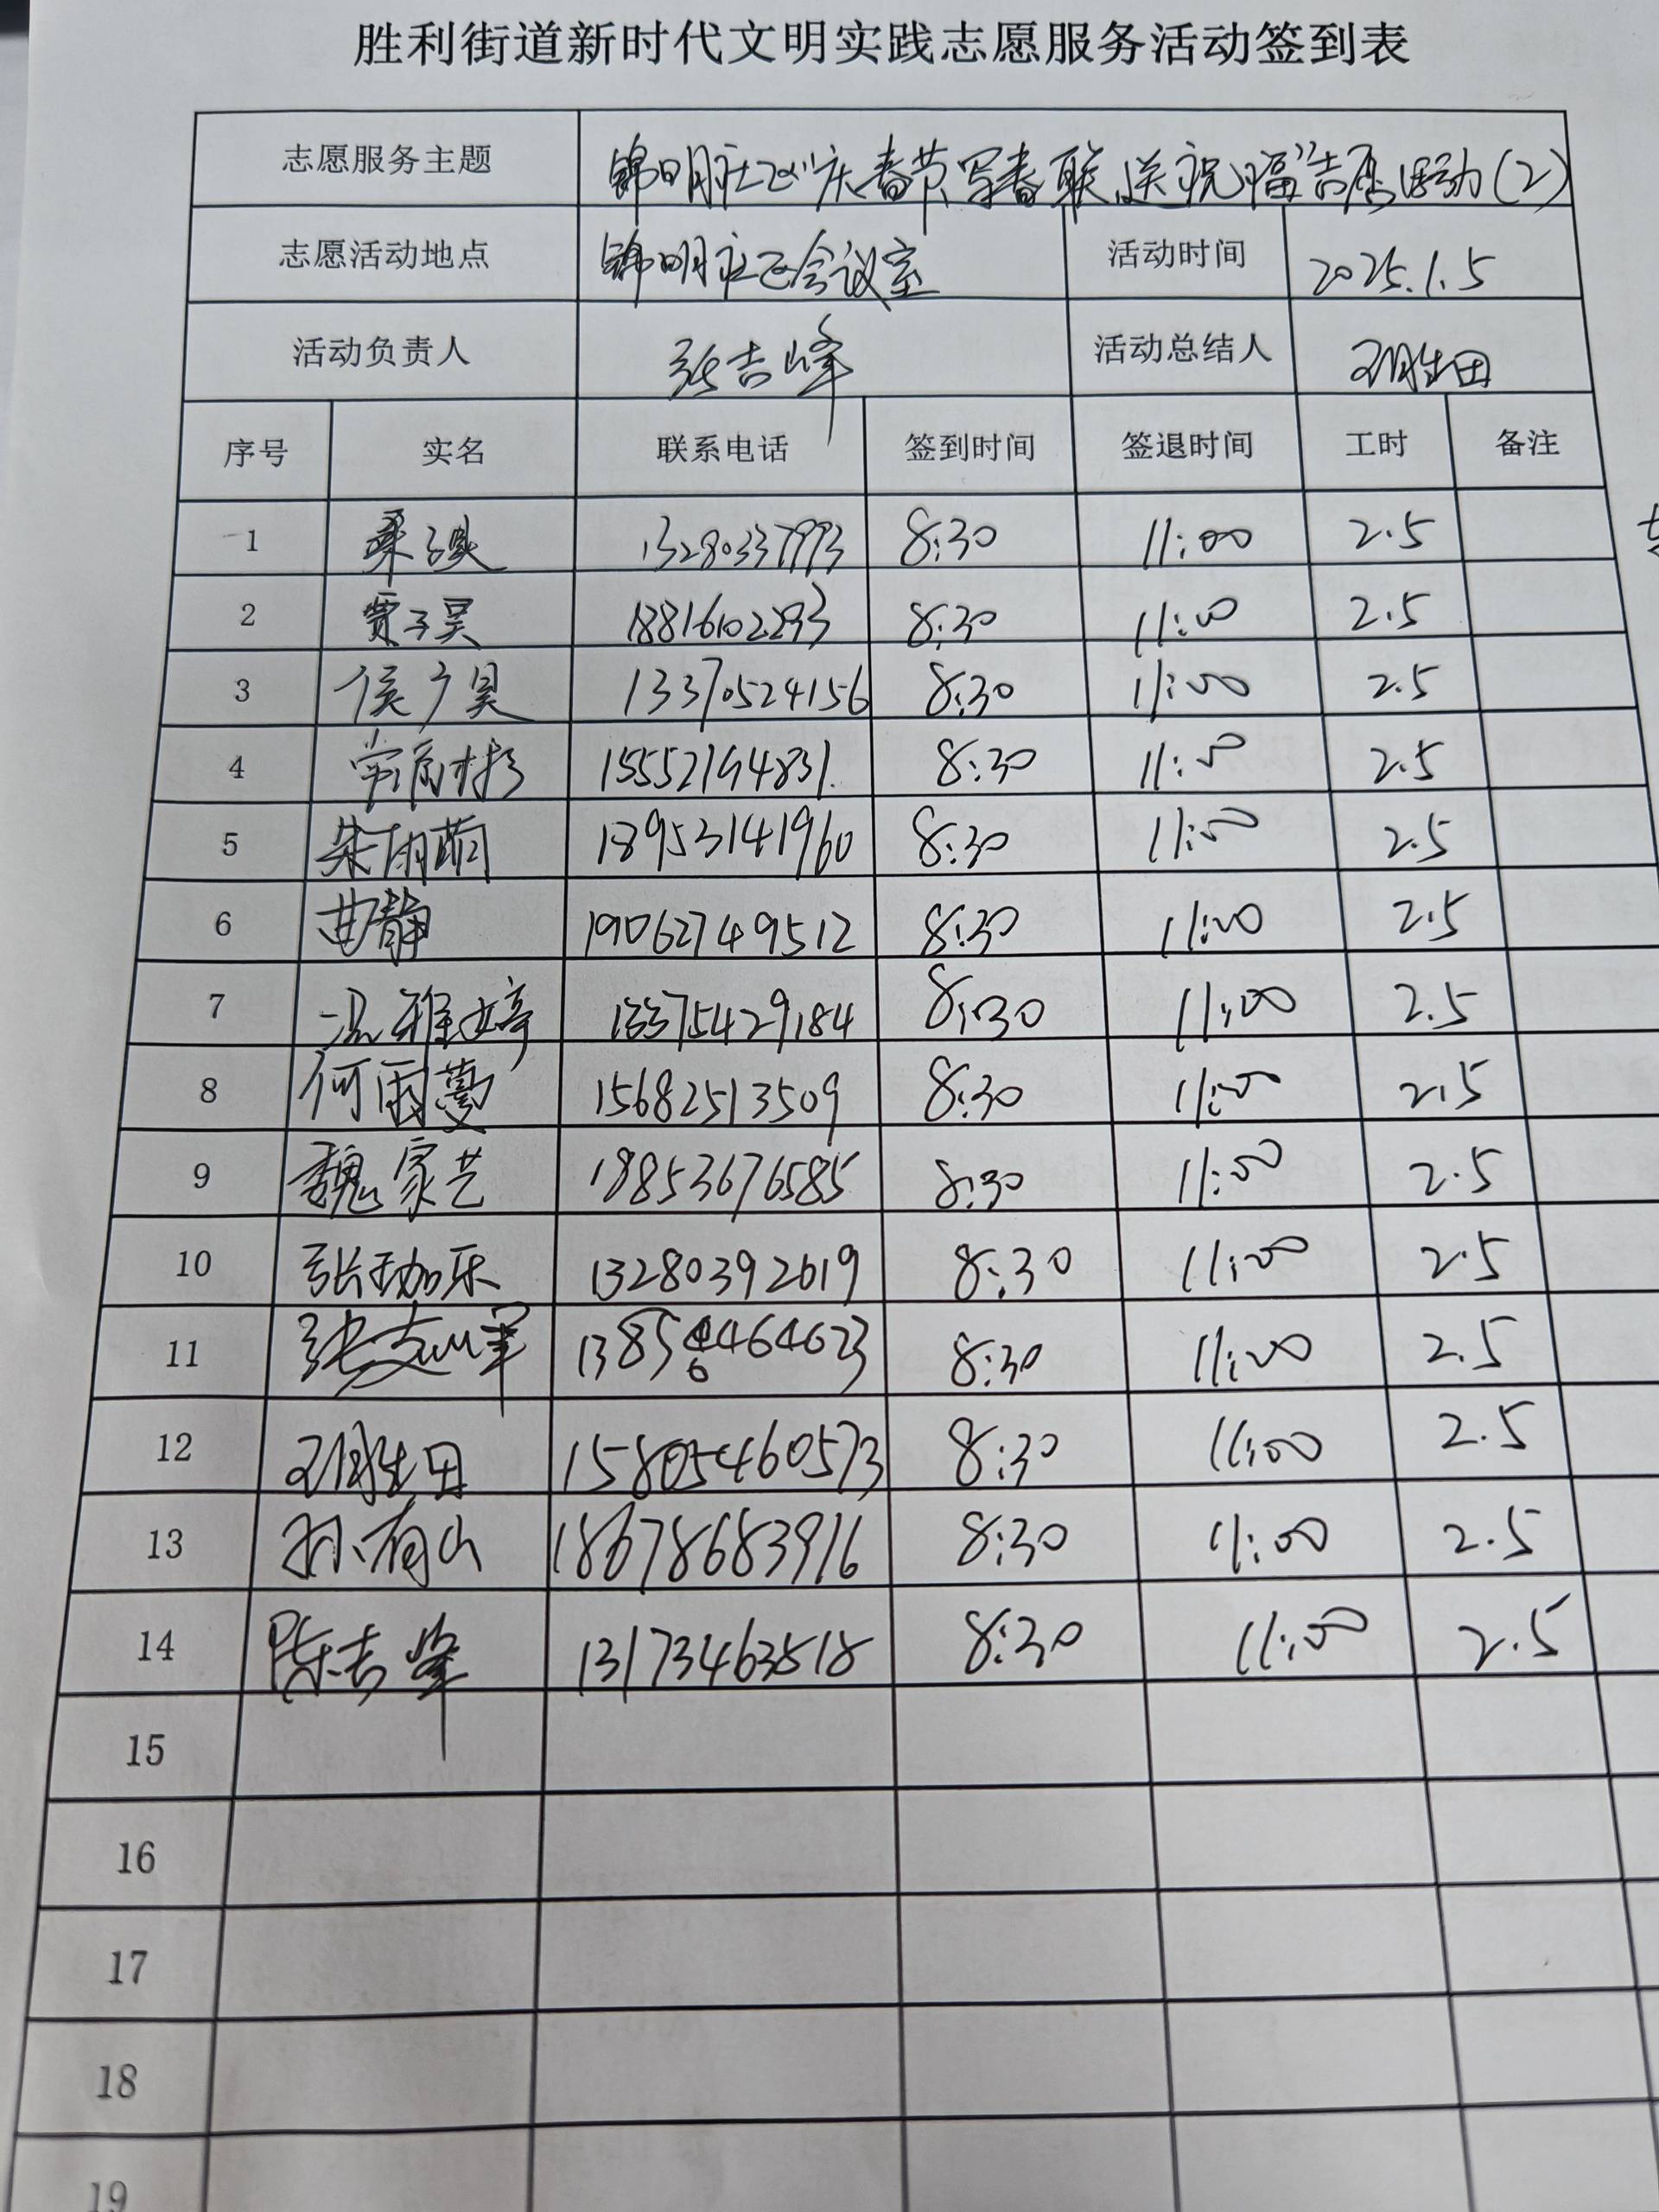 胜利街道新时代文明实践志愿服务活动签到表
志愿服务主题 锦明社区"庆春节写春联送祝福"志愿活动(2)
志愿活动地点 锦明社区会议室 活动时间 2025.1.5
活动负责人 张吉峰 活动总结人
序号 实名 联系电话 签到时间 签退时间 工时 备注
1 13280337993 8:30 11:00 2.5
2 贾子昊 18816102293 8:30 11:00 2.5
3 侯广昊 13370524156 8:30 11:00 2.5
4 15552194831 8:30 11:00 2.5
5 朱雨萌 18953141960 8:30 11:00 2.5
6 曲静 19062749512 8:30 11:00 2.5
7 温雅婷 13375429184 8:30 11:00 2.5
8 何雨蔓 15682513509 8:30 11:00 2.5
9 魏家艺 18853676585 8:30 11:00 2.5
10 张珈乐 13280392619 8:30 11:00 2.5
11 8:30 11:00 2.5
12 15805460573 8:30 11:00 2.5
13 孙有山 18678683916 8:30 11:00 2.5
14 陈吉峰 13173463518 8:30 11:00 2.5
15
16
17
18
19